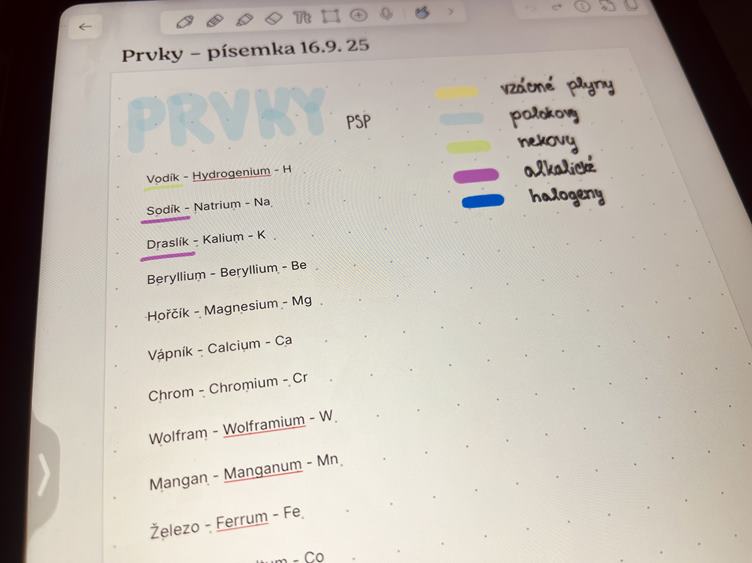 Prvky – písemka 16.9. 25
PRVKY PSP
vzácné plyny
polokovy
nekovy
alkalické
halogeny
Vodík - Hydrogenium - H
Sodík - Natrium - Na
Draslík - Kalium - K
Beryllium - Beryllium - Be
Hořčík - Magnesium - Mg
Vápník - Calcium - Ca
Chrom - Chromium - Cr
Wolfram - Wolframium - W
Mangan - Manganum - Mn
Železo - Ferrum - Fe
- Co